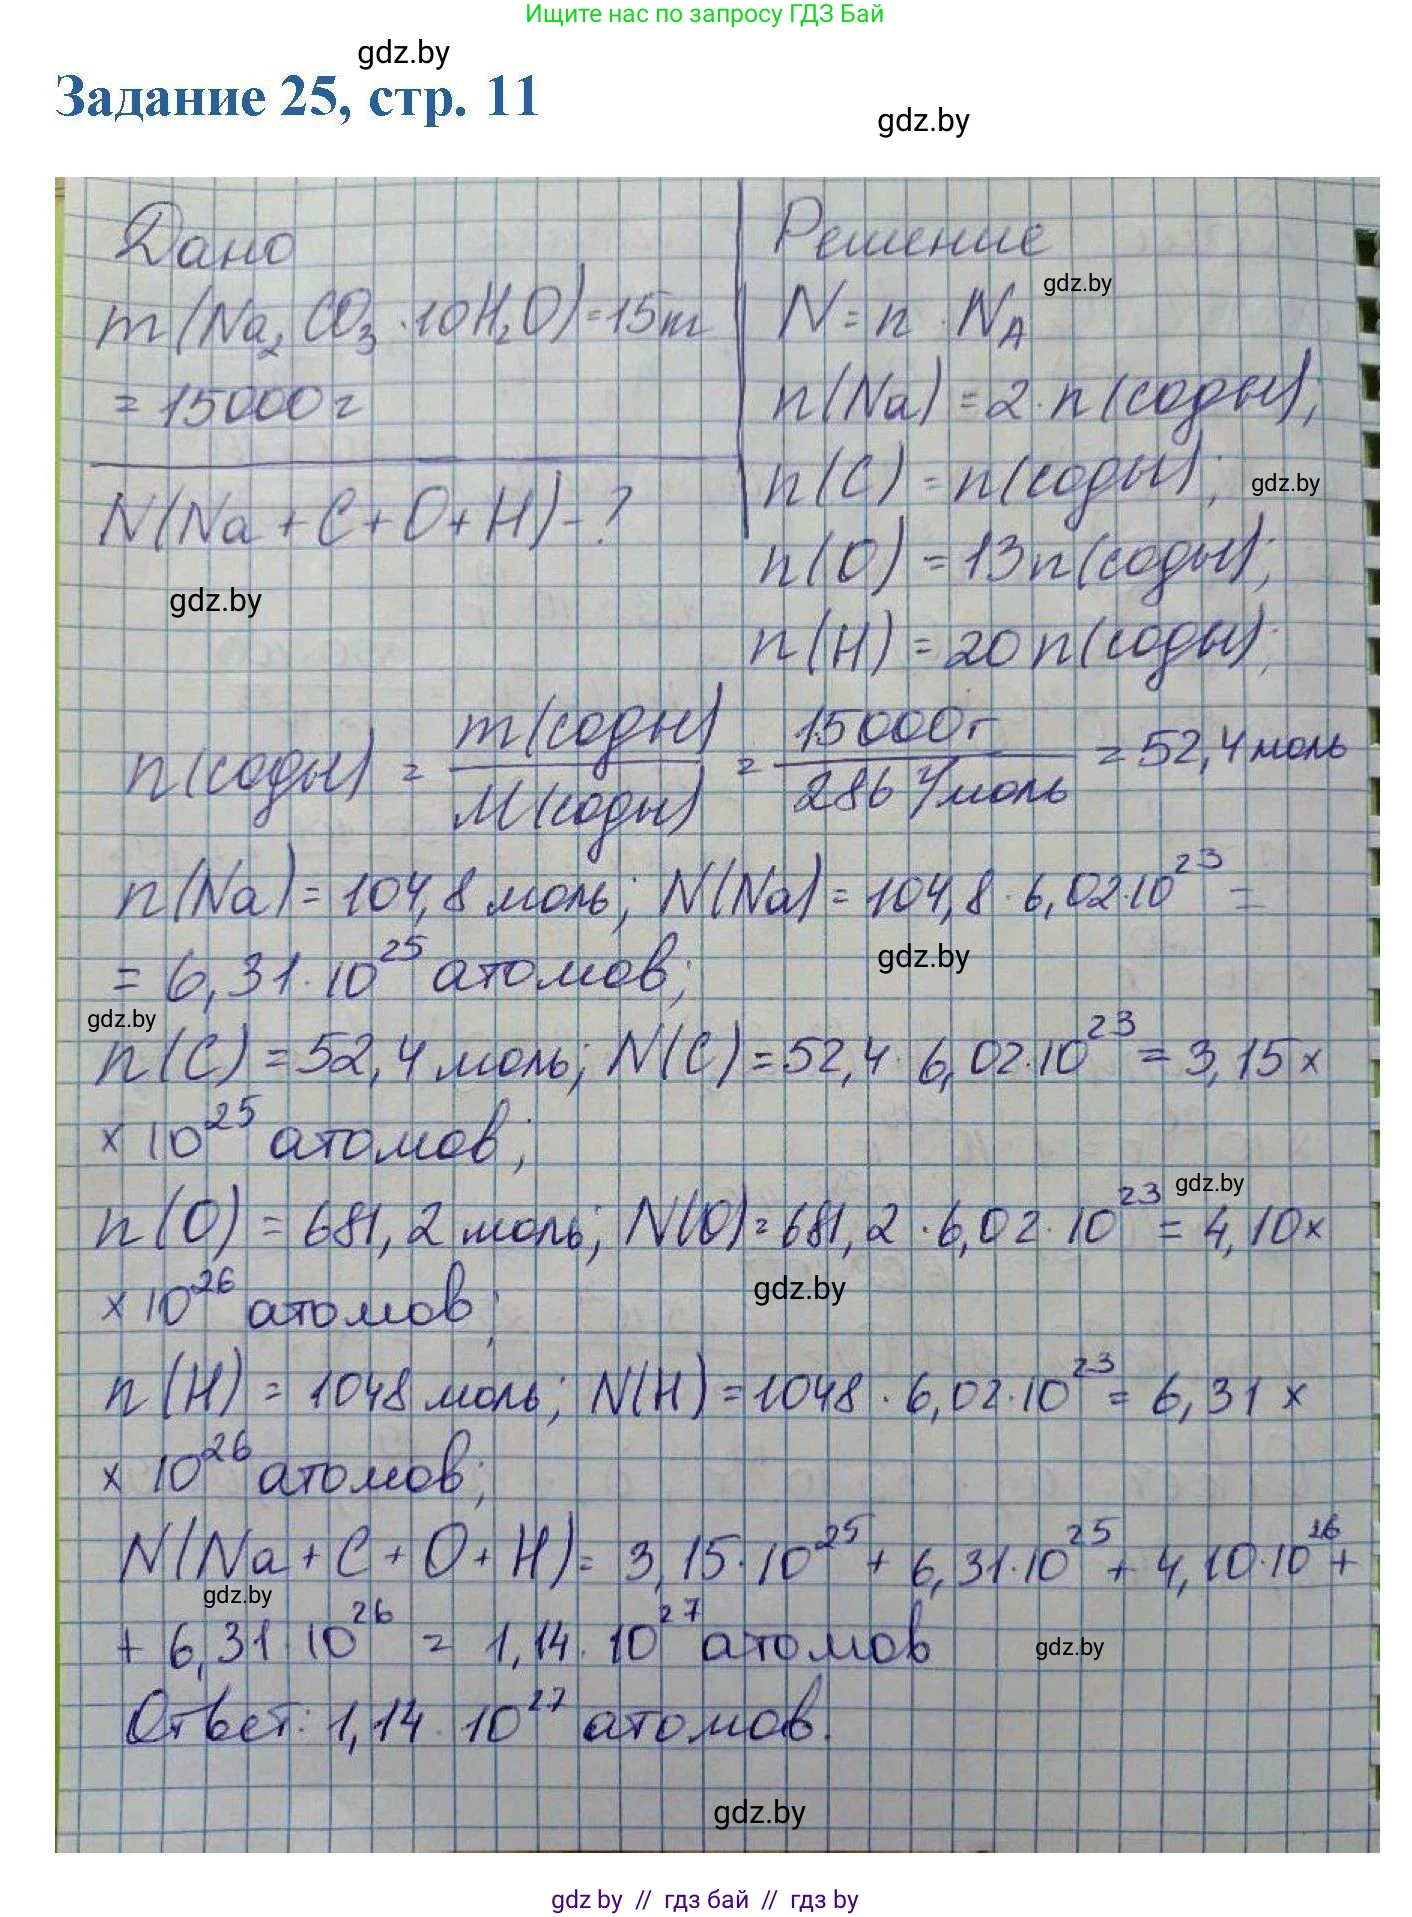 Ищите нас по запросу ГДЗ Бай
gdz.by
Задание 25, стр. 11
gdz.by
Дано
m(Na₂CO₃·10H₂O)=15т
= 15000г
N(Na+C+O+H)-?
gdz.by
Решение
gdz.by
N=n·N_A
n(Na)=2·n(соды);
n(C)=n(соды);
gdz.by
n(O)=13n(соды);
n(H)=20n(соды);
n(соды) = m(соды)/M(соды) = 15000г/286 г/моль = 52,4 моль
n(Na)=104,8 моль; N(Na)=104,8·6,02·10²³=
= 6,31·10²⁵ атомов;
gdz.by
gdz.by
n(C)=52,4 моль; N(C)=52,4·6,02·10²³=3,15×
×10²⁵ атомов;
gdz.by
n(O)=681,2 моль; N(O)=681,2·6,02·10²³=4,10×
×10²⁶ атомов;
gdz.by
n(H)=1048 моль; N(H)=1048·6,02·10²³=6,31×
×10²⁶ атомов;
N(Na+C+O+H)=3,15·10²⁵+6,31·10²⁵+4,10·10²⁶+
gdz.by
+6,31·10²⁶ = 1,14·10²⁷ атомов
gdz.by
Ответ: 1,14·10²⁷ атомов.
gdz.by
gdz by // гдз бай // гдз by